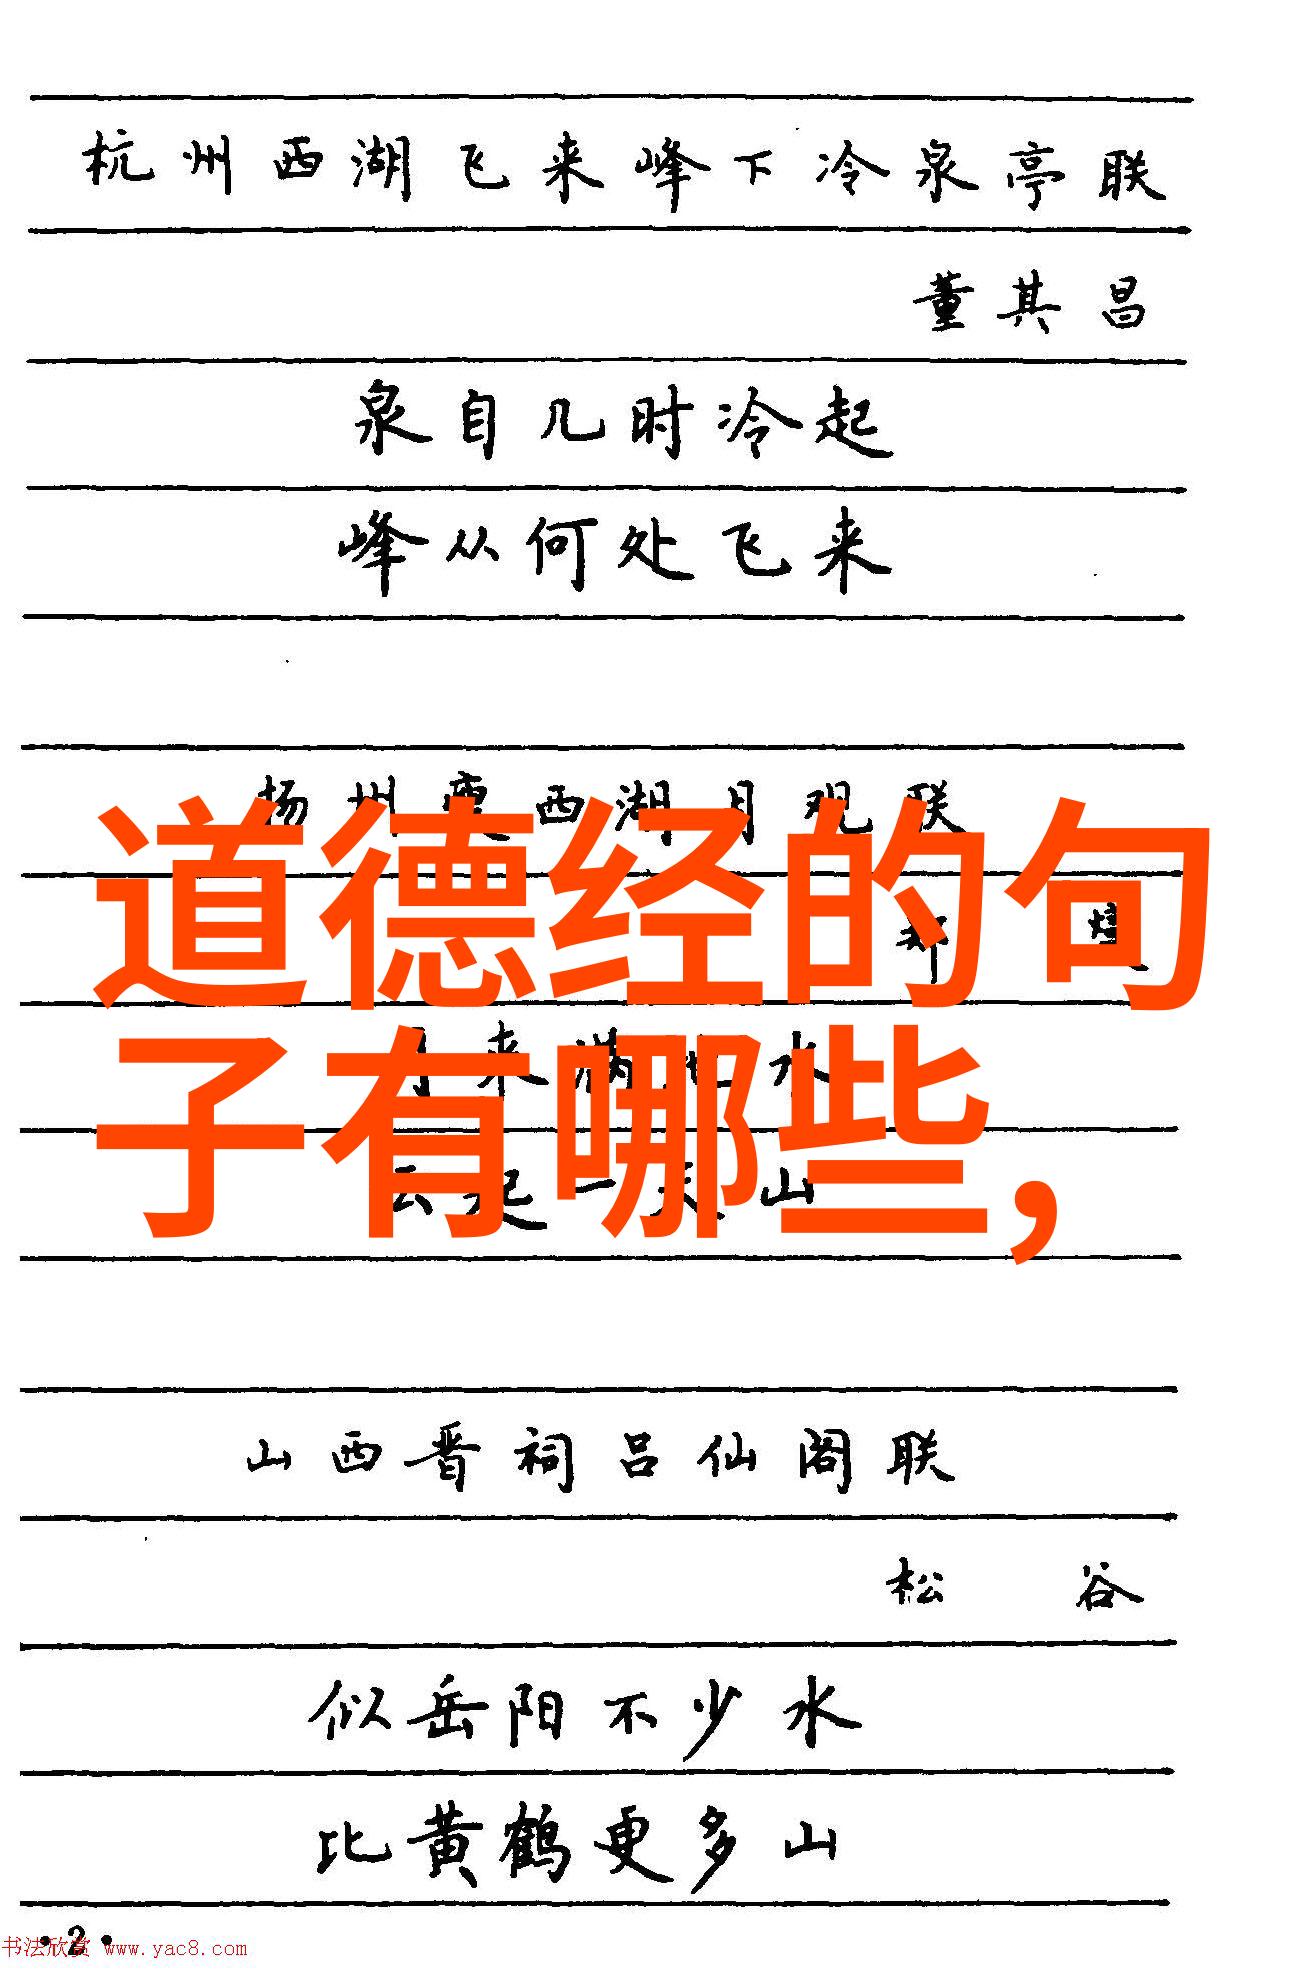 杭州西湖飞来峰下冷泉亭联
董其昌
泉自几时冷起
峰从何处飞来
扬州瘦西湖月观联
郑燮
道德经的句
月来满地水
云起一天山
子有哪些,
山西晋祠吕仙阁联
松谷
似岳阳不少水
比黄鹤更多山
·2·
书法欣赏 www.yac8.com